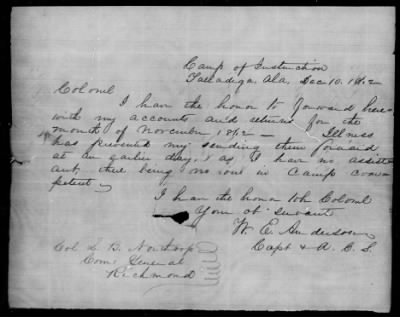 Camp of Instruction
Talladega, Ala, Dec 10. 1862
Colonel
I have the honor to forward here
with my accounts and returns for the
month of November 1862 — Illness
has prevented my sending them forward
at an earlier day, & as I have no assist
ant, there being no one in Camp com
petent,
I have the honor to be Colonel
Your obt Servant
W. E. Anderson
Capt & A. C. S.
Col L. B. Northrop
Com General
Richmond